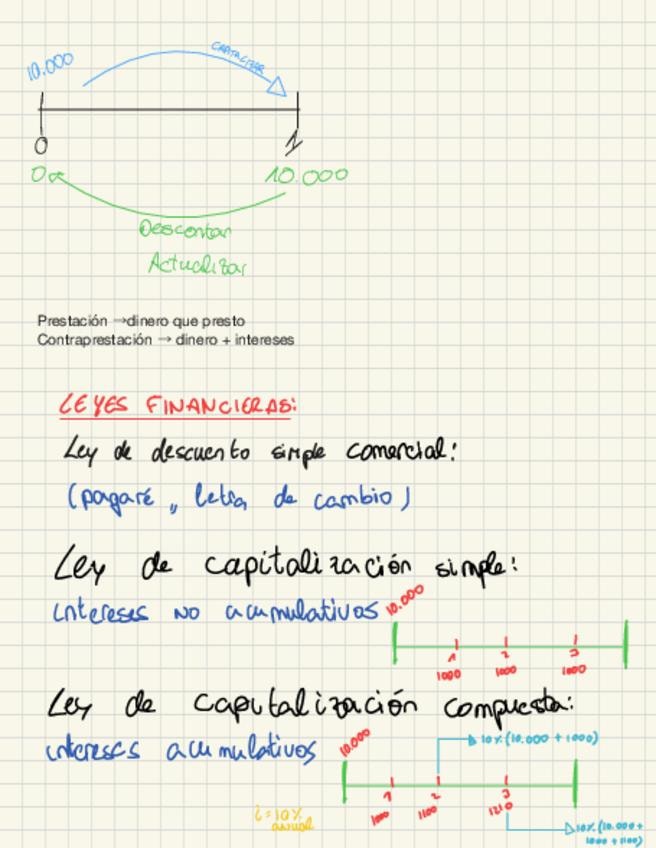 10.000
CAPITALIZAR
0 1
0 10.000
Descontar
Actualizar
Prestación →dinero que presto
Contraprestación → dinero + intereses
LEYES FINANCIERAS:
Ley de descuento simple comercial:
(pagaré, letra de cambio)
Ley de capitalización simple:
intereses NO acumulativos
10.000
1 2 3
1000 1000 1000
Ley de capitalización compuesta:
intereses acumulativos
10.000
10%(10.000 + 1000)
1 2 3
1000 1100 1210
i=10%
anual
10%(10.000+
1000 + 1100)